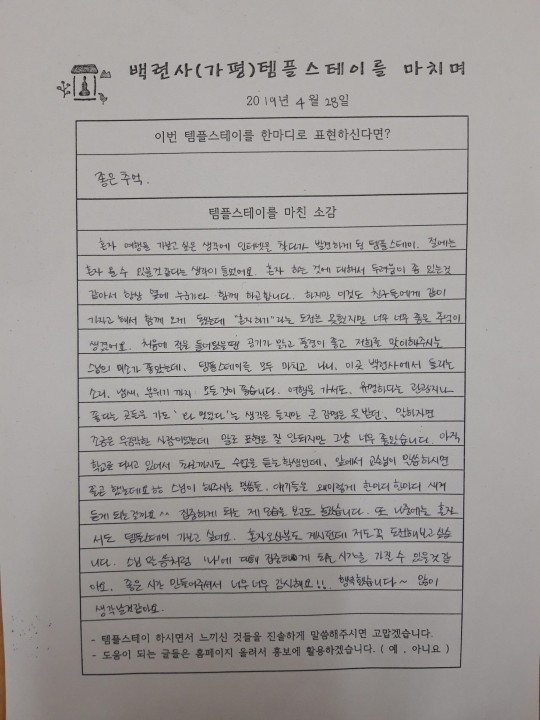 백련사(가평)템플스테이를 마치며
2019년 4월 28일
이번 템플스테이를 한마디로 표현하신다면?
좋은 추억.
템플스테이를 마친 소감
혼자 여행을 가보고 싶은 생각에 인터넷을 찾다가 발견하게 된 템플스테이. 절에는
혼자 올 수 있을것같다는 생각이 들었어요. 혼자 하는 것에 대해서 두려움이 좀 있는것
같아서 항상 옆에 누군가와 함께 하곤합니다. 하지만 이것도 친구들에게 같이
가자고 해서 함께 오게 됐는데 "혼자하기"라는 도전은 못했지만 너무 너무 좋은 추억이
생겼어요. 처음에 절을 들어왔을땐 공기가 맑고 풍경이 좋고 저희를 맞이해주시는
스님의 미소가 좋았는데, 템플스테이를 모두 마치고 나니, 이곳 백련사에서 들리는
소리, 냄새, 분위기 까지 모든 것이 좋습니다. 여행을 가서도, 유명하다는 관광지나
좋다는 곳들을 가도 '와 멋있다'는 생각은 들지만 큰 감명은 못 받던, 어쩌면
조금은 무감각한 사람이었는데 말로 표현은 잘 안되지만 그냥 너무 좋았습니다. 아직
학교를 다니고 있어서 수업을 듣는 학생인데, 앞에서 교수님이 말씀하시면
졸곤 했는데요 ㅎㅎ 스님이 해주시는 말씀들, 얘기들은 왜이렇게 한마디 한마디 새겨
듣게 되는걸까요 ^^ 집중하게 되는 제 모습을 보고도 놀랐습니다. 또 나중에는 혼자
서도 템플스테이 가보고 싶네요. 혼자 오신분도 계시던데 저도 꼭 도전해보고 싶습
니다. 스님 말씀처럼 '나'에 대해 집중하게 되는 시간을 가질 수 있을것 같
아요. 좋은 시간 만들어주셔서 너무 너무 감사해요!! 행복했습니다~ 많이
생각날것같아요.
- 템플스테이 하시면서 느끼신 것들을 진솔하게 말씀해주시면 고맙겠습니다.
- 도움이 되는 글들은 홈페이지 올려서 홍보에 활용하겠습니다. ( 예 , 아니요 )